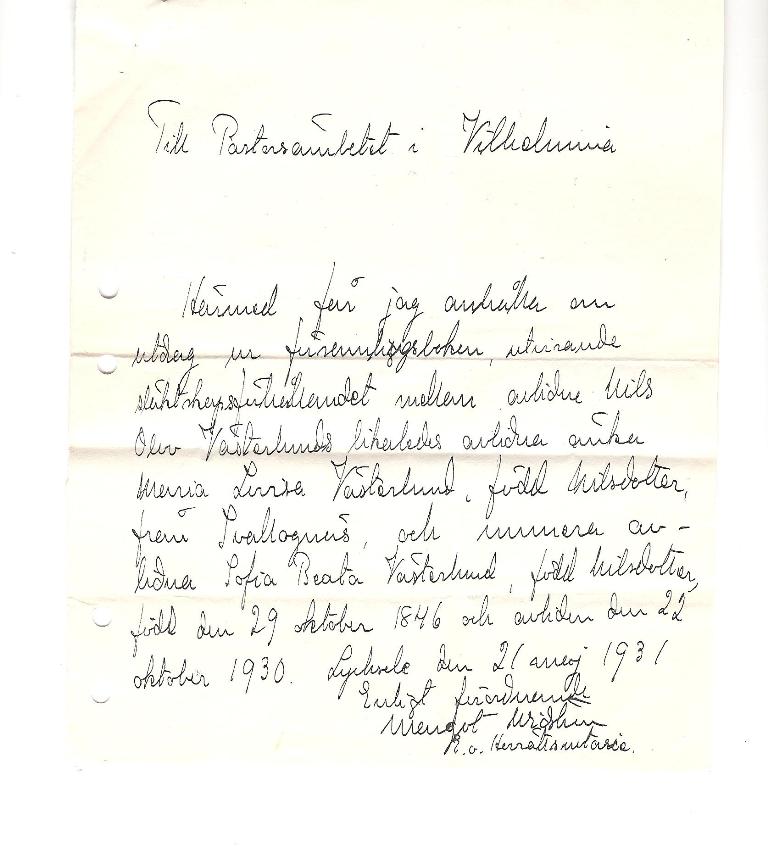 Till Pastorsämbetet i Vilhelmina
Härmed får jag anhålla om
utdrag ur församlingsboken, utvisande
släktskapsförhållandet mellan avlidne Nils
Olov Västerlunds likaledes avlidna änka
Maria Lovisa Västerlund, född Nilsdotter,
från Svallognäs, och numera av-
lidna Sofia Beata Västerlund, född Nilsdotter,
född den 29 oktober 1846 och avliden den 22
oktober 1930. Lycksele den 21 maj 1931
Enligt förordnande
Margot
E.o. Häradsnotarie.